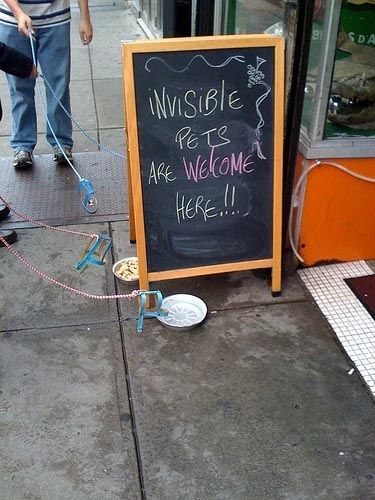 iNViSiBLE
PETS
ARE WELCOME
HERE!!!